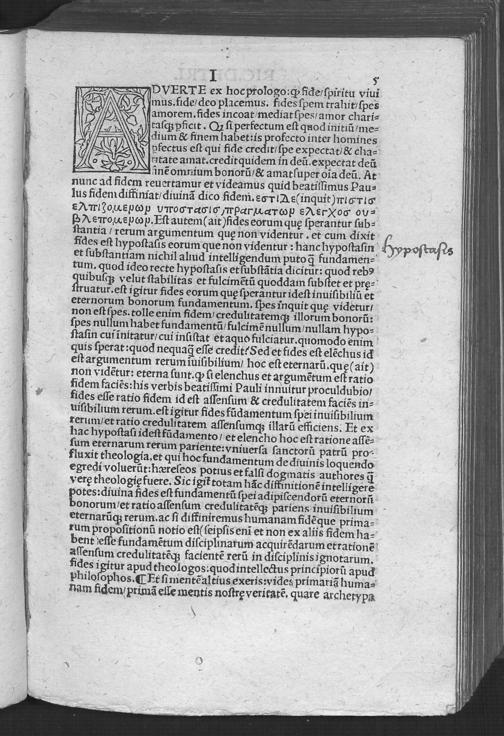 I
5
ADVERTE ex hoc prologo: ꝙ fide/spiritu viui
mus. fide/deo placemus. fides spem trahit/spes
amorem. fides incoat/mediat spes/amor chari-
tasqꝫ ꝑficit. Qꝫ si perfectum est quod initiū/me-
dium & finem habet: is profecto inter homines
ꝑfectus est qui fide credit/spe expectat/& cha-
ritate amat. credit quidem in deū. expectat deū
omnium bonorū/& amat super oīa deū. At
nunc ad fidem reuertamur et videamus quid beatissimus Pau-
lus fidem diffiniat/diuinā dico fidem. εστι δε (inquit) πιστις
ελπιζομενων υποστασις/πραγματων ελεγχος ου-
βλεπομενων. Est autem (ait) fides eorum quę sperantur sub-
stantia/rerum argumentum quę non videntur. et cum dixit
fides est hypostasis eorum que non videntur: hanc hypostasin
et substantiam nichil aliud intelligendum puto ꝗ̃ fundamen-
tum. quod ideo recte hypostasis et substātia dicitur: quod rebꝰ
quibusqꝫ velut stabilitas et fulcimētū quoddam substet et prę-
struatur. est igitur fides eorum quę sperantur idest inuisibiliū et
eternorum bonorum fundamentum. spes inquit quę videtur/
non est spes. tolle enim fidem/credulitatemqꝫ illorum bonorū:
spes nullum habet fundamentū/fulcimē nullum/nullam hypo-
stasin cui initatur/cui insistat et a quo fulciatur. quomodo enim
quis sperat: quod nequaꝗ̃ esse credit? Sed et fides est elēchus id
est argumentum rerum iuisibilium/hoc est eternarū. quę (ait)
non vidētur: eterna sunt. ꝙ si elenchus et argumētum est ratio
fidem faciēs: his verbis beatissimi Pauli innuitur proculdubio/
fides esse ratio fidem id est assensum & credulitatem faciēs in-
uisibilium rerum. est igitur fides fūdamentum spei inuisibilium
rerum/et ratio credulitatem assensumqꝫ illarū efficiens. Et ex
hac hypostasi idest fūdamento/et elencho hoc est ratione assē-
sum eternarum rerum pariente: vniuersa sanctorū patrū pro-
fluxit theologia. et qui hoc fundamentum de diuinis loquendo
egredi voluerūt: hæreseos potius et falsi dogmatis authores ꝗ̃
verę theologię fuere. Sic igit̃ totam hāc diffinitionē intelligere
potes: diuina fides est fundamentū spei adipiscendorū eternorū
bonorum/et ratio assensum credulitatēqꝫ pariens inuisibilium
eternarūqꝫ rerum. ac si diffiniremus humanam fidē que prima-
rum propositionū notio est (seipsis eni et non ex aliis fidem ha-
bent) esse fundamētum disciplinatum acquirēdarum et rationē
assensum credulitatēqꝫ facientē rerū in disciplinis ignotarum.
fides igitur apud theologos: quod intellectus principiorū apud
philosophos. ¶ Et si mentē altius exeris: vides primariā huma-
nam fidem/primā esse mentis nostrę veritatē. quare archetypa
hypostasis